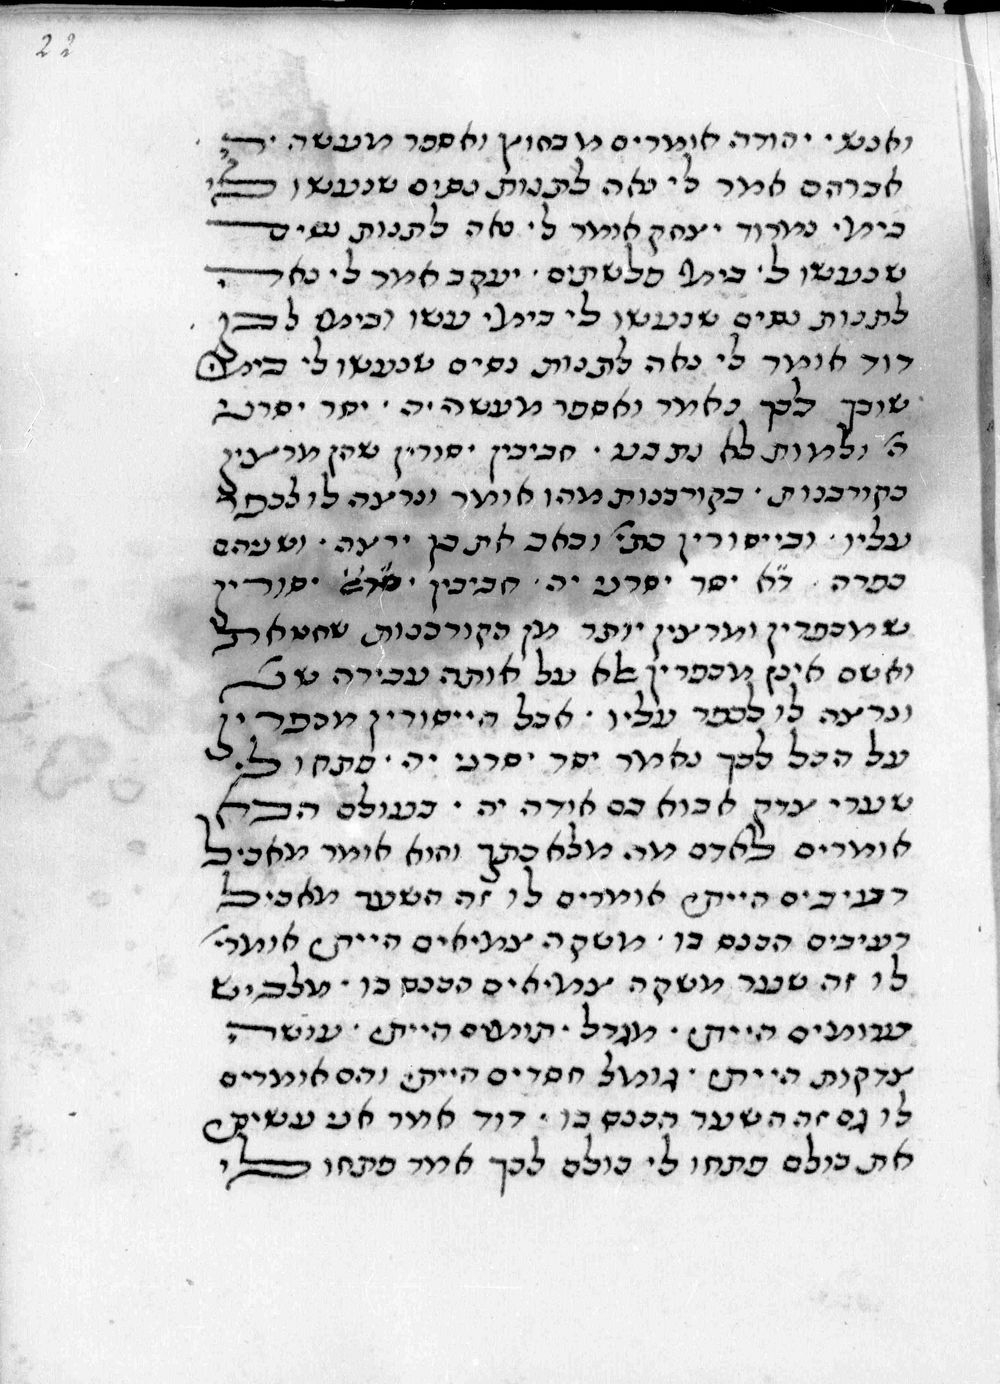 22
ואנשי יהודה אומרים מבחוץ ואספר מעשה יה
אברהם אמר לי נאה לתנות נסים שנעשו לי
בימי נמרוד יצחק אומר לי נאה לתנות נסים
שנעשו לי בימי פלשתים · יעקב אמר לי נאה
לתנות נסים שנעשו לי בימי עשו ובימי לבן
דוד אומר לי נאה לתנות נסים שנעשו לי בימי
שובך לכך נאמר ואספר מעשה יה · יסר יסרני
ה' ולמות לא נתנני · חביבין יסורין שהן מרצין
כקורבנות · בקורבנות מהו אומר ונרצה לו לכפר
עליו · ובייסורין כתי' וכאב את בן ירצה · ושניהם
כפרה · ד"א יסר יסרני יה · חביבין יסורין
שמכפרין ומרצין יותר מן הקורבנות שחטאת
ואשם אינן מכפרין אלא על אותה עבירה שנ'
ונרצה לו לכפר עליו · אבל הייסורין מכפרין
על הכל לכך נאמר יסר יסרני יה · פתחו לי
שערי צדק אבוא בם אודה יה · בעולם הבא
אומרים לאדם מה מלאכתך והוא אומר מאכיל
רעיבים הייתי אומרים לו זה השער מאכיל
רעיבים הכנס בו · משקה צמיאים הייתי אומרי'
לו זה שער משקה צמיאים הכנס בו · מלביש
ערומים הייתי · מגדל · יתומים הייתי · עושה
צדקות הייתי · גומל חסדים הייתי והם אומרים
לו גם זה השער הכנס בו · דוד אמר אני עשיתי
את כולם פתחו לי כולם לכך אמר פתחו לי